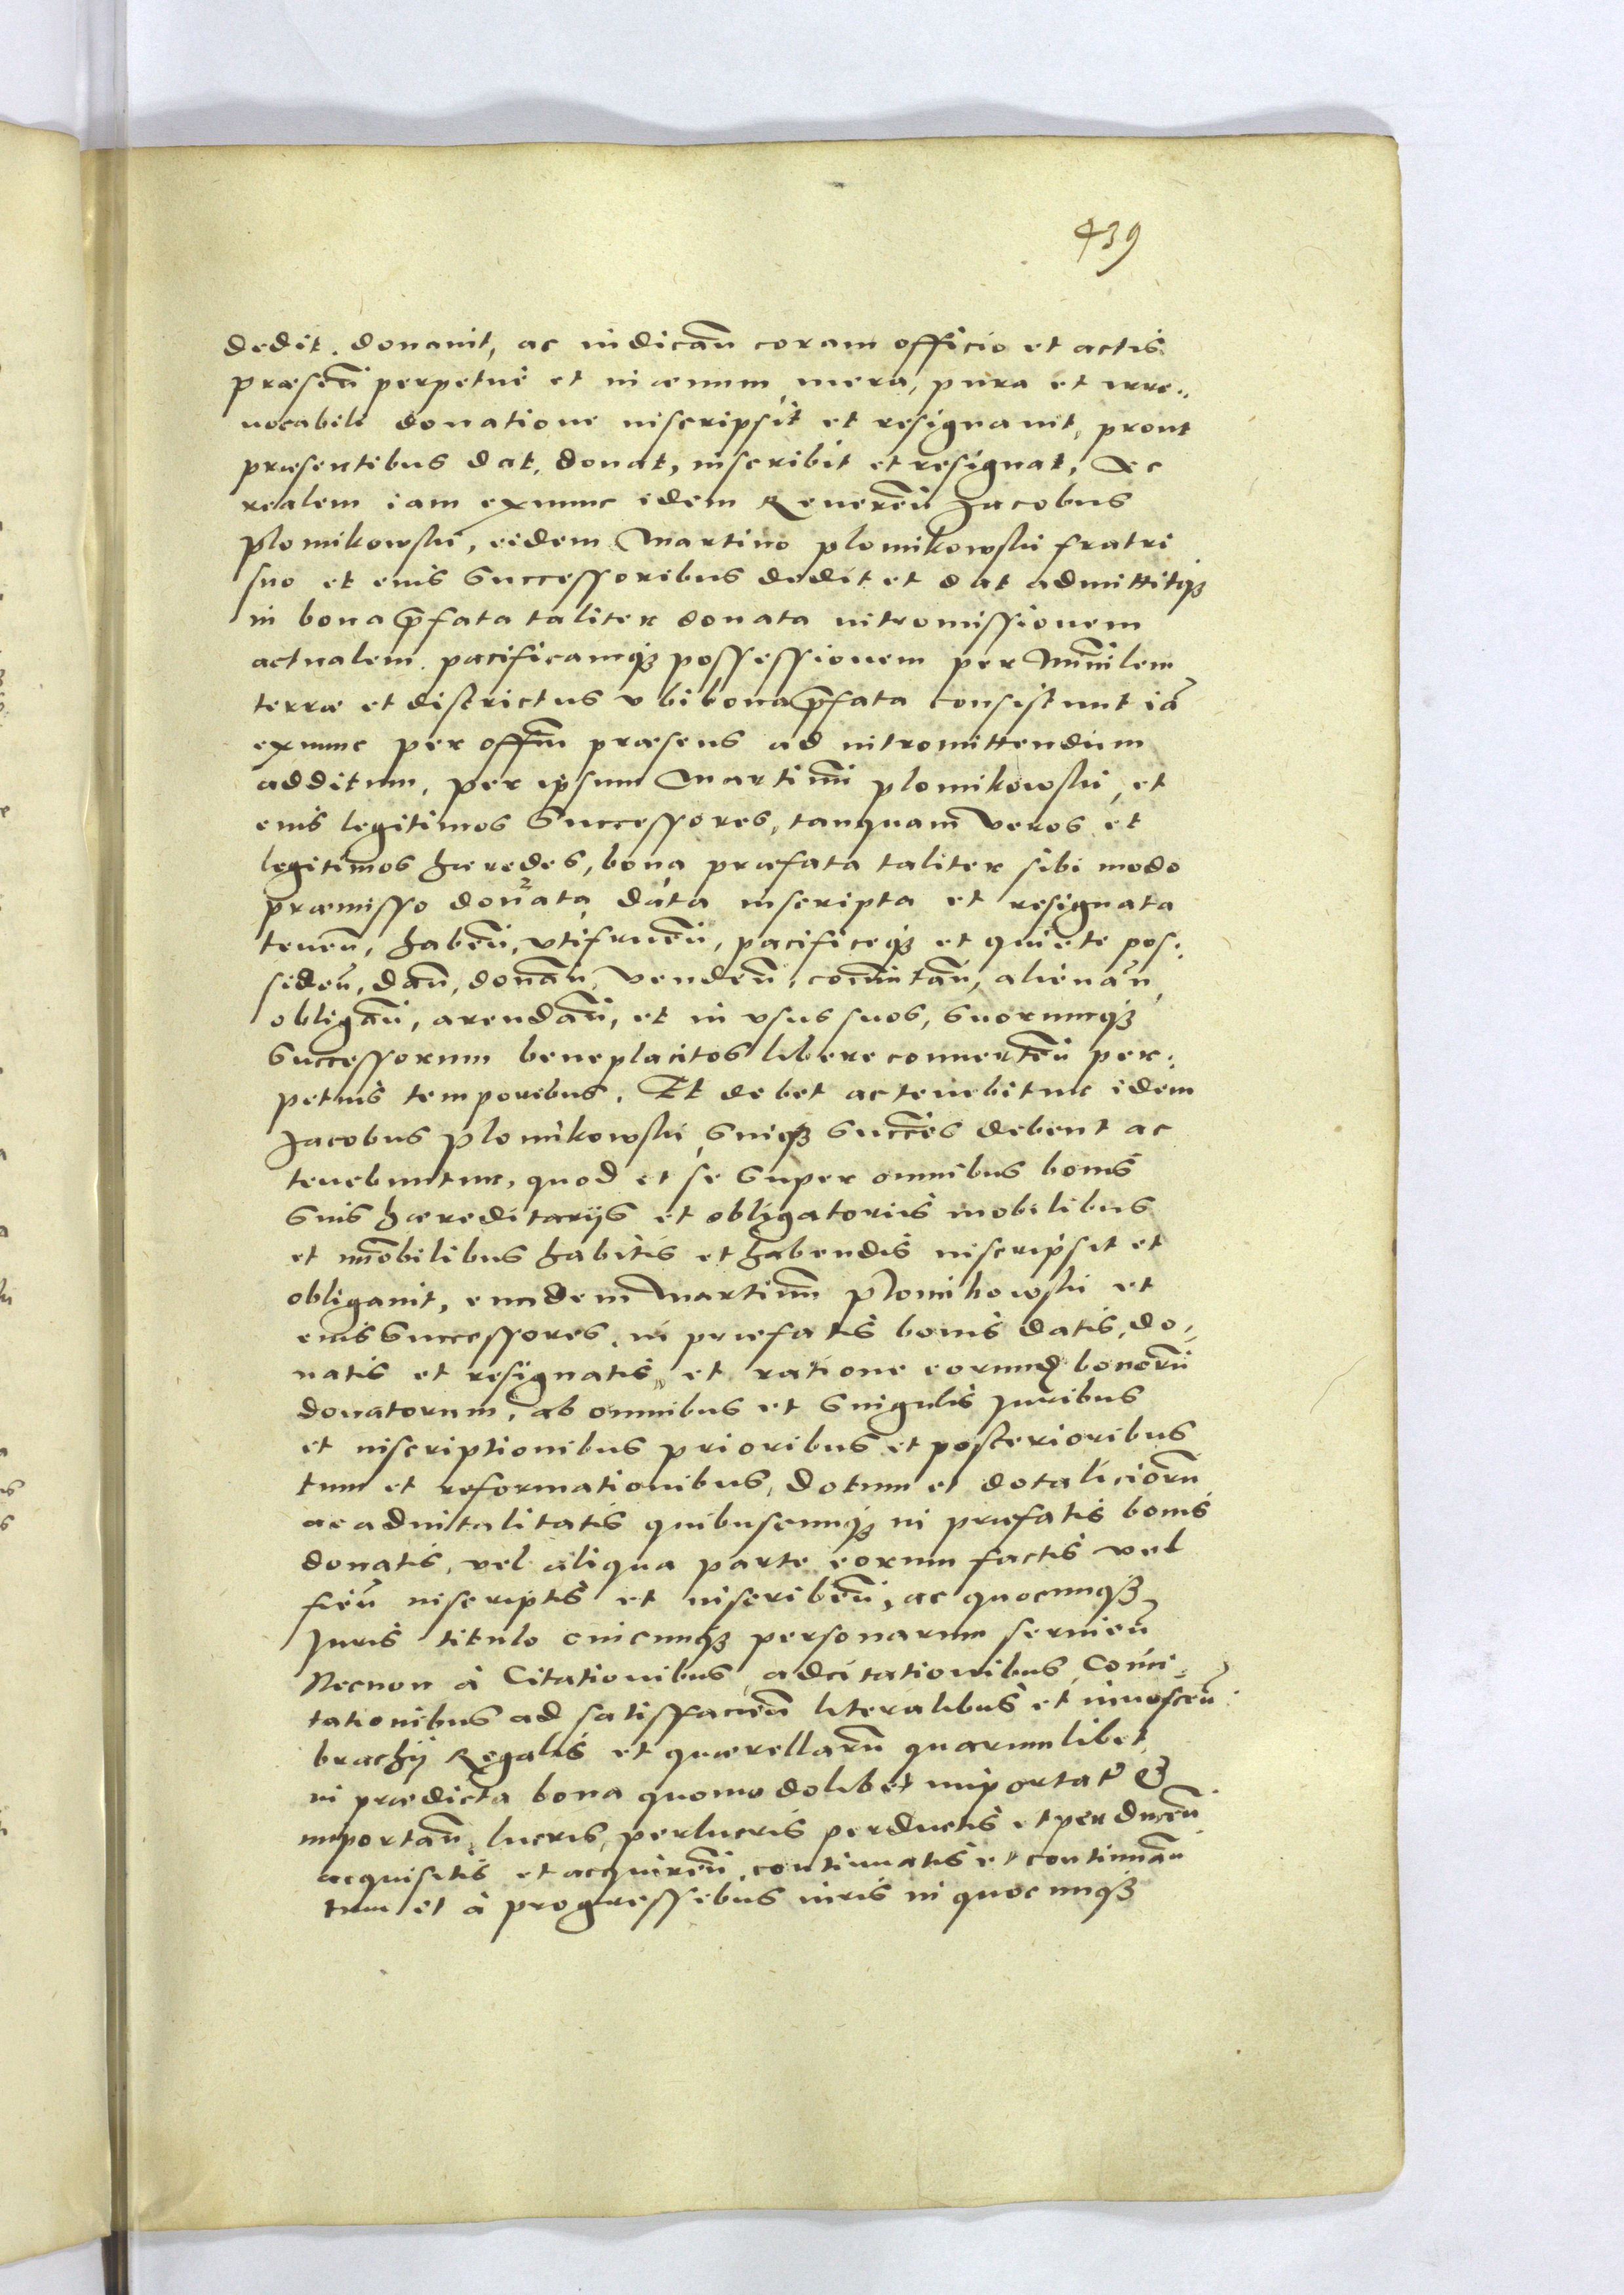 439
dedit, donauit, ac in dican̄ coram officio et actis
præsen̄ perpetue et in æuum, mera, pura et irre„
uocabili donatione inscripsit et resignauit, prout
præsentibus dat, donat, inscribit et resignat, Ac
realem iam exnunc idem Reueren̄ Jacobus
Plomikowski, eidem Martino Plomikowski fratri
suo et eius Successoribus dedit et dat admittitq₃
in bona p̄fata taliter donata intromissionem
actualem, pacificamq₃ possessionem per Mīnilem
terræ et districtus vbi bona p̄fata consistunt iā
exnunc per offīm præsens ad intromittendum
additum, per ipsum Martinū Plomikowski, et
eius legitimos Successores, tanquam veros et
legitimos hæredes, bona præfata taliter sibi modo
præmisso donata, data inscripta et resignata
tenen̄, haben̄, vtifruen̄, pacificeq₃ et quiete pos„
siden̄, dan̄, donan̄, venden̄, com̄utan̄, alienan̄,
obligan̄, arendan̄, et in vsus suos, Suorumq₃
Successorum beneplacitos libere conuerten̄ per„
petuis temporibus. Et debet ac tenebitur idem
Jacobus Plomikowski, Suiq₃ Succēs debent ac
tenebuntur, quod et se Super omnibus bonis
Suis hæreditarijs et obligatoriis mobilibus
et im̄obilibus habitis et habendis inscripsit et
obligauit, eundem Martinū Plomikowski et
eius Successores, in præfatis bonis datis, do„
natis et resignatis, et ratione eorund. bonorū
donatorum, ab omnibus et Singulis Juribus
et inscriptionibus prioribus et posterioribus
tum et reformationibus, dotum et dotaliciorū
ac aduitalitatis quibuscunq₃ in præfatis bonis
donatis, vel aliqua parte eorum factis vel
fien̄ inscriptis et inscriben̄, ac quocunq₃
Juris titulo cuicunq₃ personarum seruien̄
Necnon à Citationibus, adcitationibus, Conci„
tationibus ad satisfacien̄ literalibus et innoscen̄
brachij Regalis et quærellarū quarumlibet
in prædicta bona quomodolibet importat̄ et
importan̄, lucris, perlucris perductis et perducen̄
acquisitis et acquiren̄, continuatis et continuan̄
tum et à progressibus iuris in quocunq₃